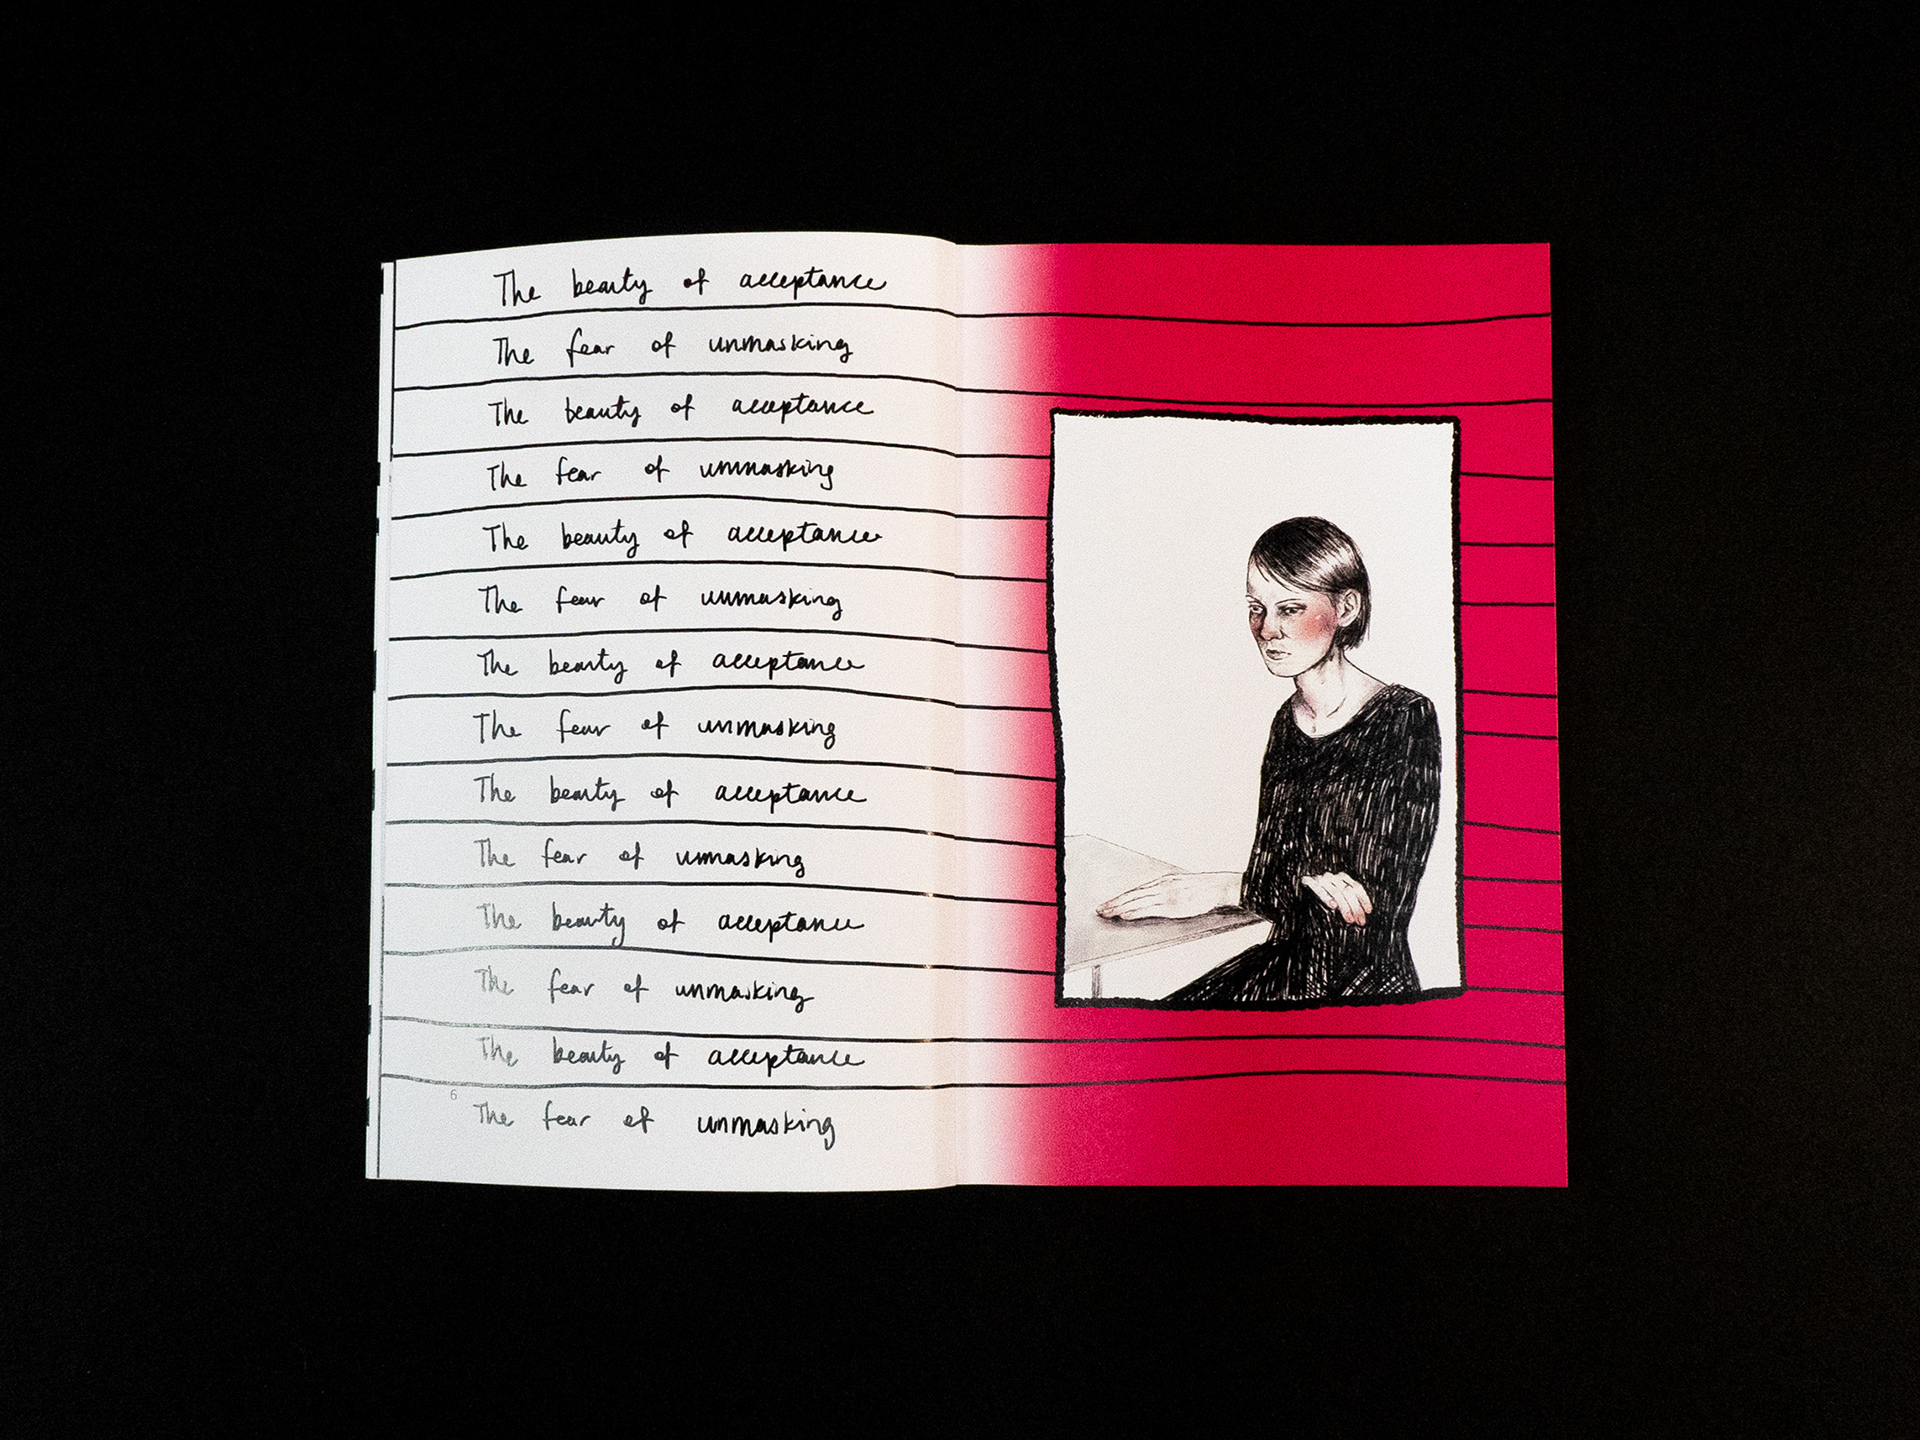 The beauty of acceptance
The fear of unmasking
The beauty of acceptance
The fear of unmasking
The beauty of acceptance
The fear of unmasking
The beauty of acceptance
The fear of unmasking
The beauty of acceptance
The fear of unmasking
The beauty of acceptance
The fear of unmasking
The beauty of acceptance
6
The fear of unmasking